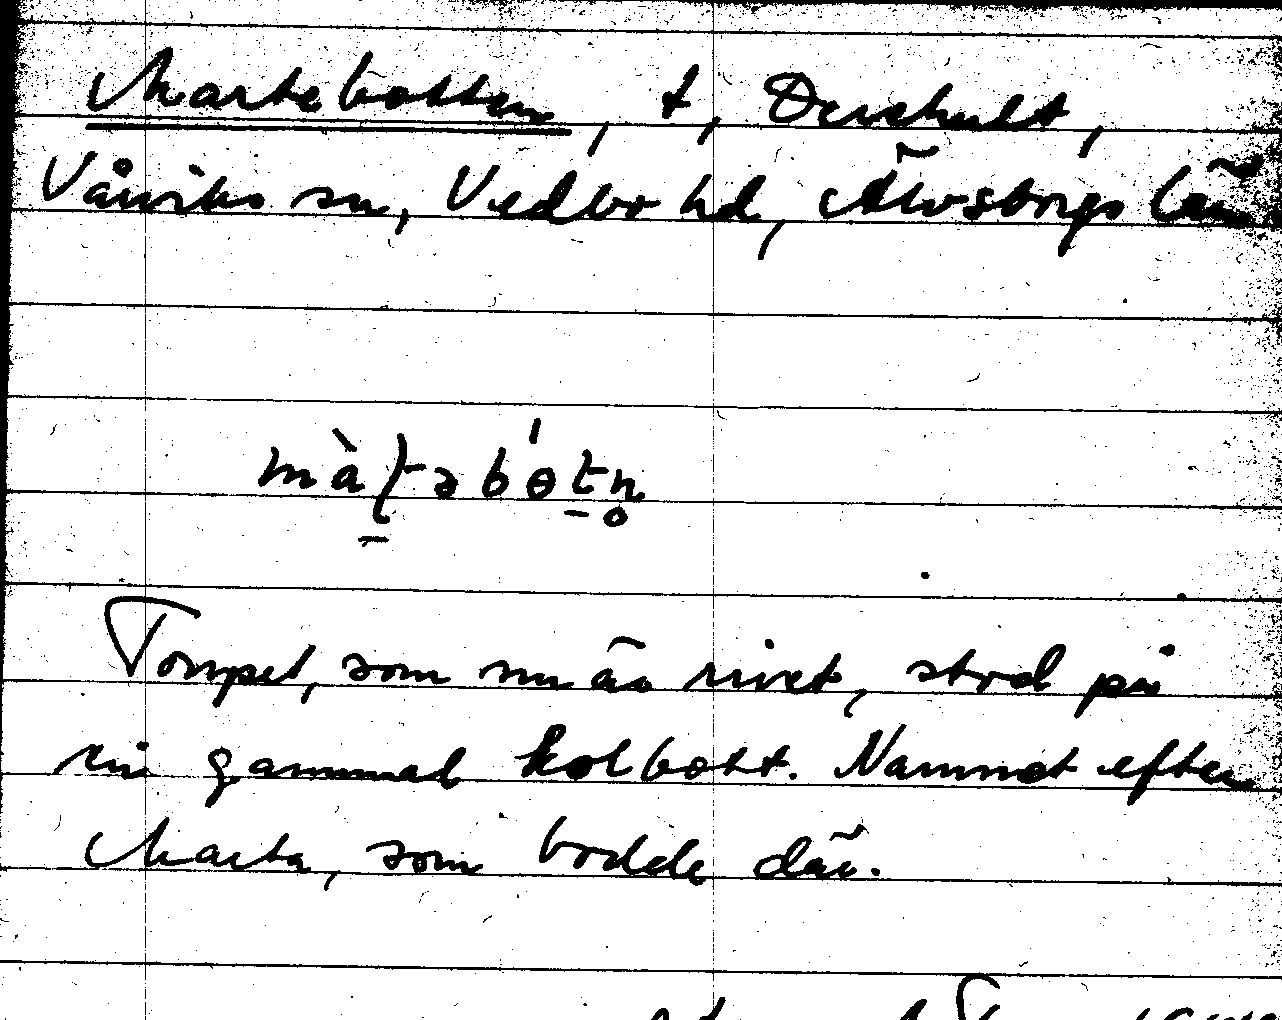 Martebotten, t, Dershult,
Vårviks sn, Vedbo hd, Älvsborgs län
màʈəbɵ́tn̥
Torpet, som nu är rivet, stod på
en gammal kolbott. Namnet efter
Marta, som bodde där.